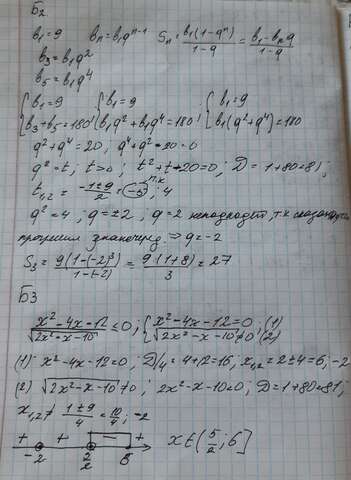 Б2
b₁=9   bₙ=b₁qⁿ⁻¹   Sₙ=b₁(1-qⁿ)/1-q=b₁-bₙq/1-q
b₃=b₁q²
b₅=b₁q⁴
{b₁=9   {b₁=9   {b₁=9
b₃+b₅=180; b₁q²+b₁q⁴=180; b₁(q²+q⁴)=180
q²+q⁴=20; q⁴+q²-20=0
q²=t; t>0; t²+t-20=0; D=1+80=81;
t₁,₂=-1±9/2=-5; 4 п.к
q²=4; q=±2; q=2 неподходет, т.к сказано, что
прогрессия знакочеред. ⇒ q=-2
S₃=9(1-(-2)³)/1-(-2)=9(1+8)/3=27
Б3
x²-4x-12/√2x²-x-10≤0; {x²-4x-12=0; (1)
√2x²-x-10≠0 (2)
(1): x²-4x-12=0; D/4=4+12=16, x₁,₂=2±4=6; -2
(2) √2x²-x-10≠0; 2x²-x-10≠0; D=1+80=81;
x₁,₂≠1±9/4=10/4; -2
+ + - +
-2   6   x∈(5/2; 6]